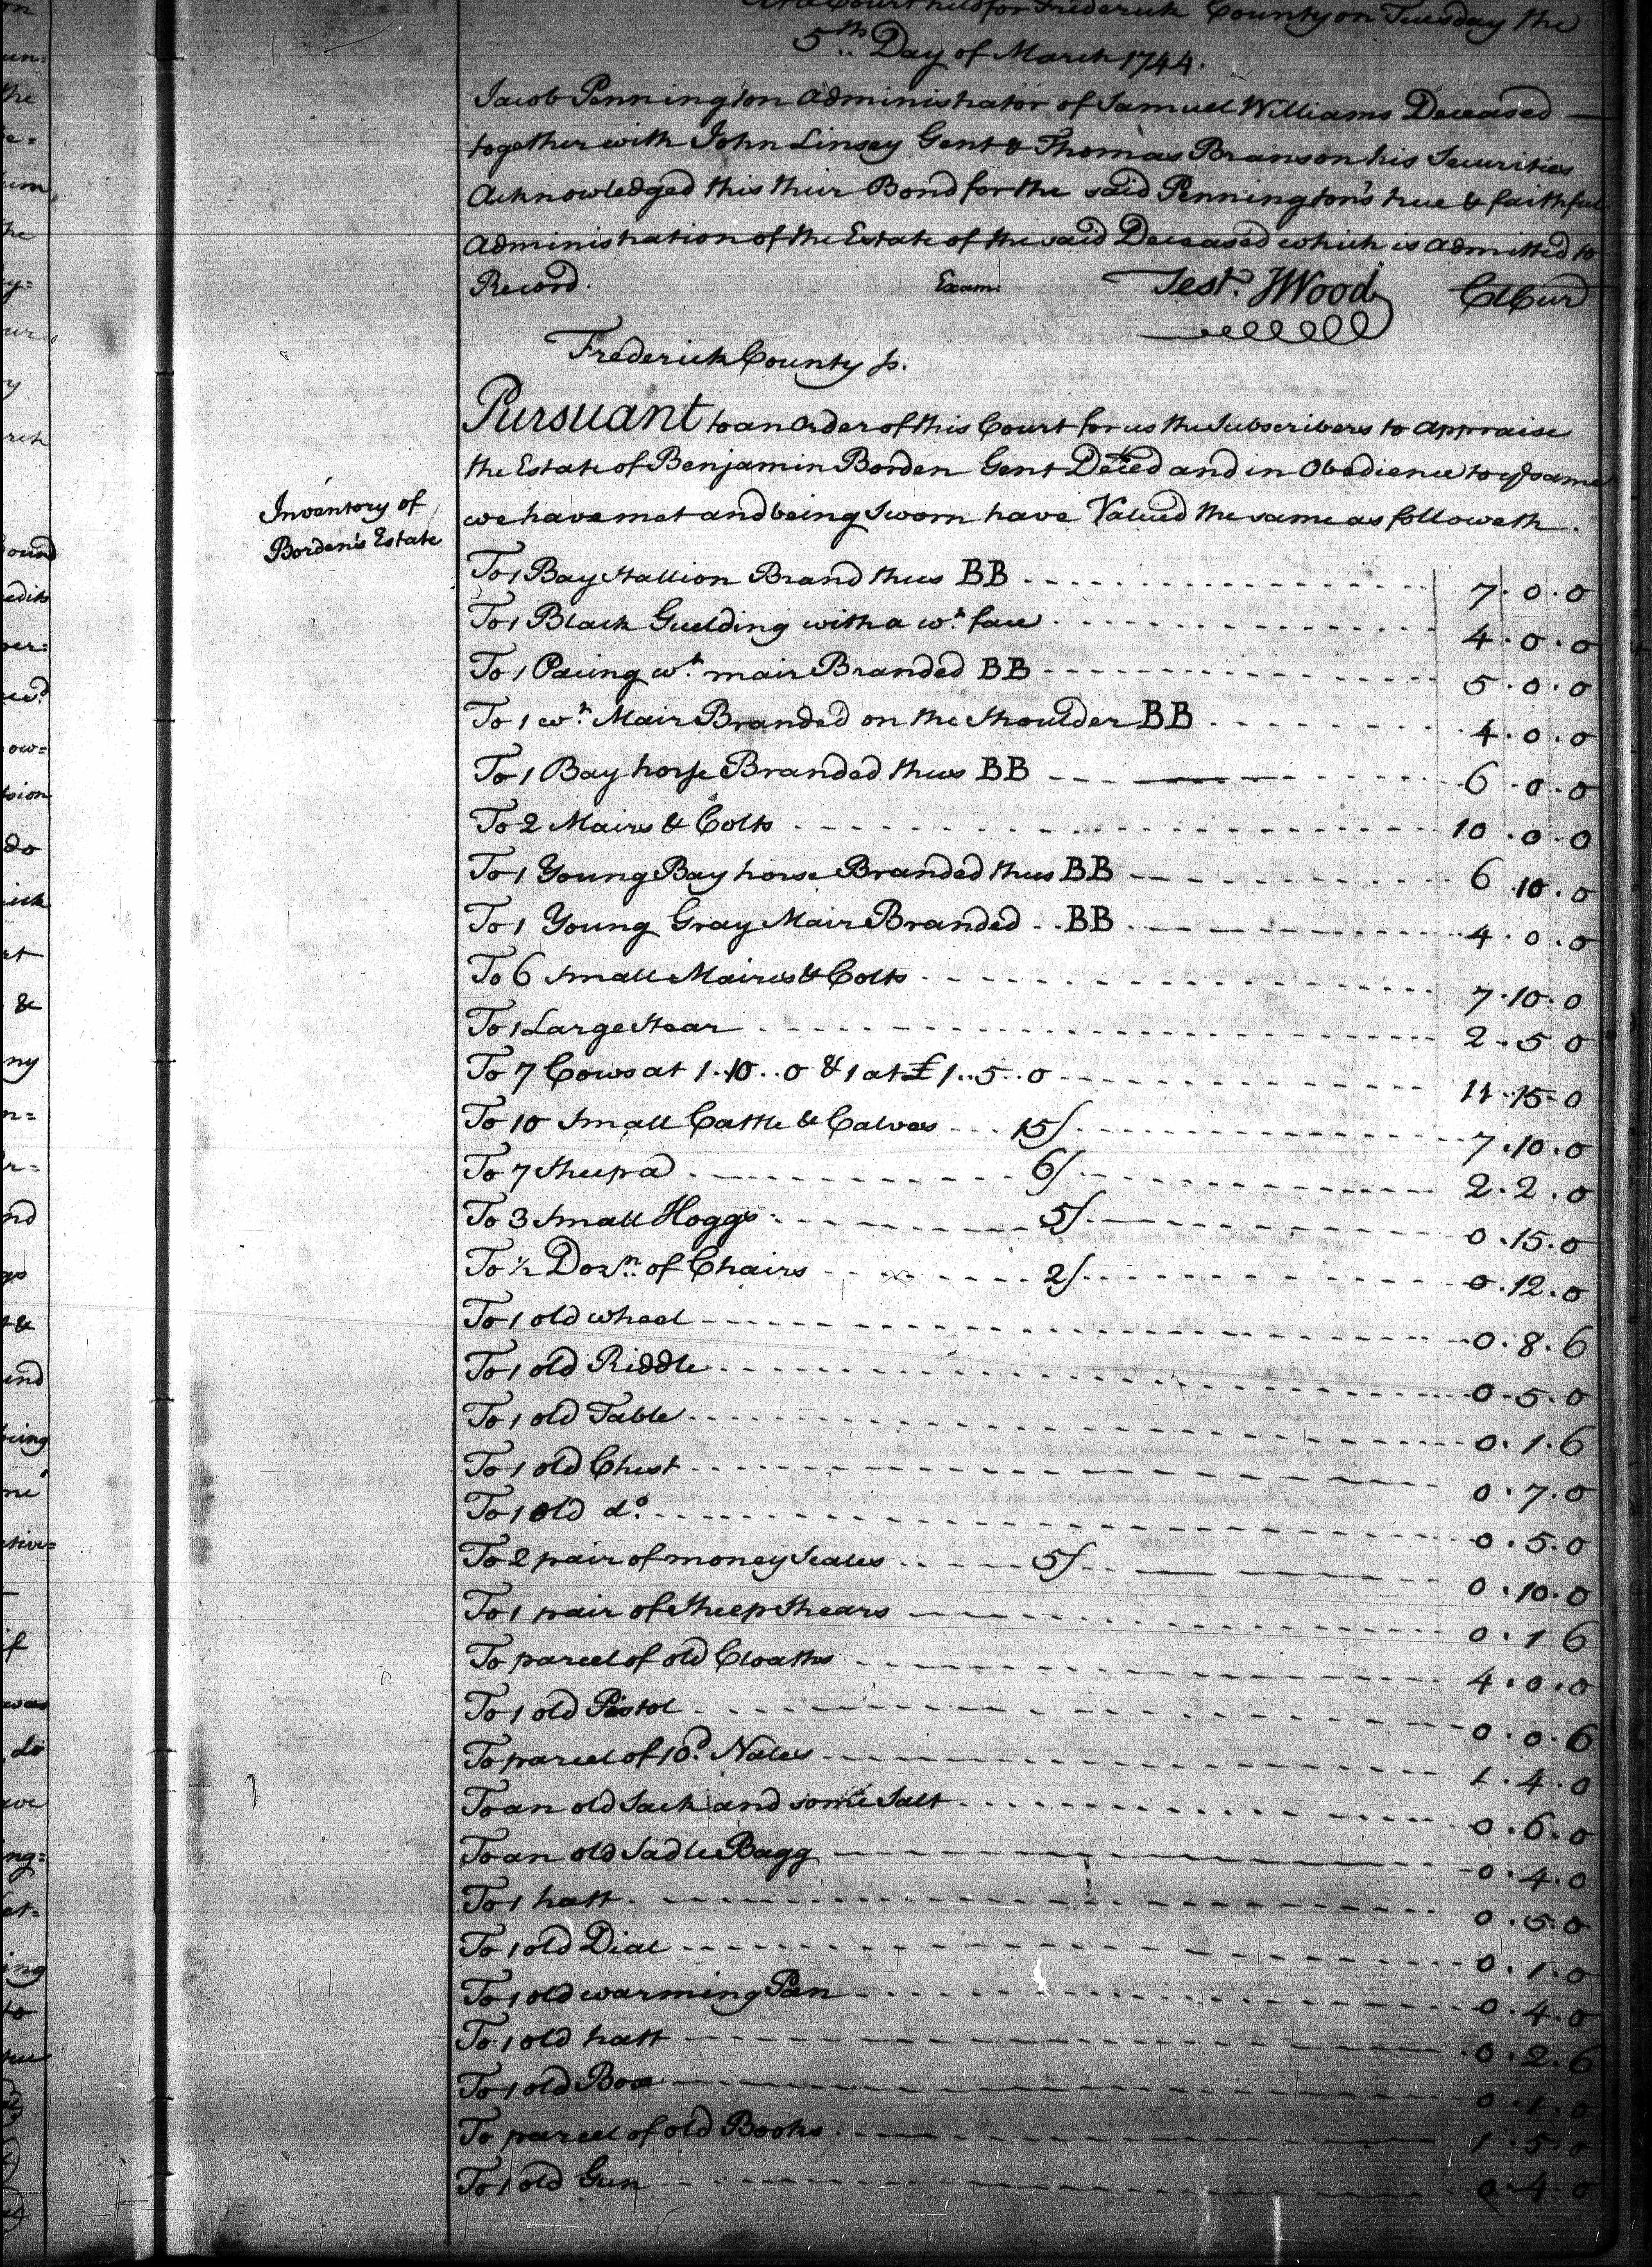 At a Court held for Frederick County on Tuesday the
5th Day of March 1744.
Jacob Pennington administrator of Samuel Williams Deceased
together with John Linsey Gent & Thomas Branson his Securities
Acknowledged this their Bond for the said Pennington's true & faithful
administration of the Estate of the said Deceased which is admitted to
Record. Exam: Test. JWood ClCur
Frederick County ss.
Pursuant to an order of this Court for us the Subscribers to appraise
the Estate of Benjamin Borden Gent Deced and in Obedience to ye same
we have met and being Sworn have Valued the same as followeth.
Inventory of
Borden's Estate
To 1 Bay Stallion Brand thus BB 7.0.0
To 1 Black Guelding with a wt. face 4.0.0
To 1 Pacing wt. mair Branded BB 5.0.0
To 1 wt. Mair Branded on the Shoulder BB 4.0.0
To 1 Bay horse Branded thus BB 6.0.0
To 2 Mairs & Colts 10.0.0
To 1 Young Bay horse Branded thus BB 6.10.0
To 1 Young Gray Mair Branded BB 4.0.0
To 6 Small Maires & Colts 7.10.0
To 1 Large Stear 2.5.0
To 7 Cows at 1..10..0 & 1 at £1..5..0 11.15.0
To 10 Small Cattle & Calves 15/ 7.10.0
To 7 Sheep a 6/ 2.2.0
To 3 Small Hoggs 5/ 0.15.0
To ½ Dozn. of Chairs 2/ 0.12.0
To 1 old wheel 0.8.6
To 1 old Riddle 0.5.0
To 1 old Table 0.1.6
To 1 old Chest 0.7.0
To 1 old do. 0.5.0
To 2 pair of money Scales 5/ 0.10.0
To 1 pair of Sheep Shears 0.1.6
To parcel of old Cloaths 4.0.0
To 1 old Pistol 0.0.6
To parcel of 10d. Nales 1.4.0
To an old Sack and some Salt 0.6.0
To an old Sadle Bagg 0.4.0
To 1 hatt 0.5.0
To 1 old Dial 0.1.0
To 1 old warming Pan 0.4.0
To 1 old hatt 0.2.6
To 1 old Box 0.1.0
To parcel of old Books 1.5.0
To 1 old Gun 0.4.0